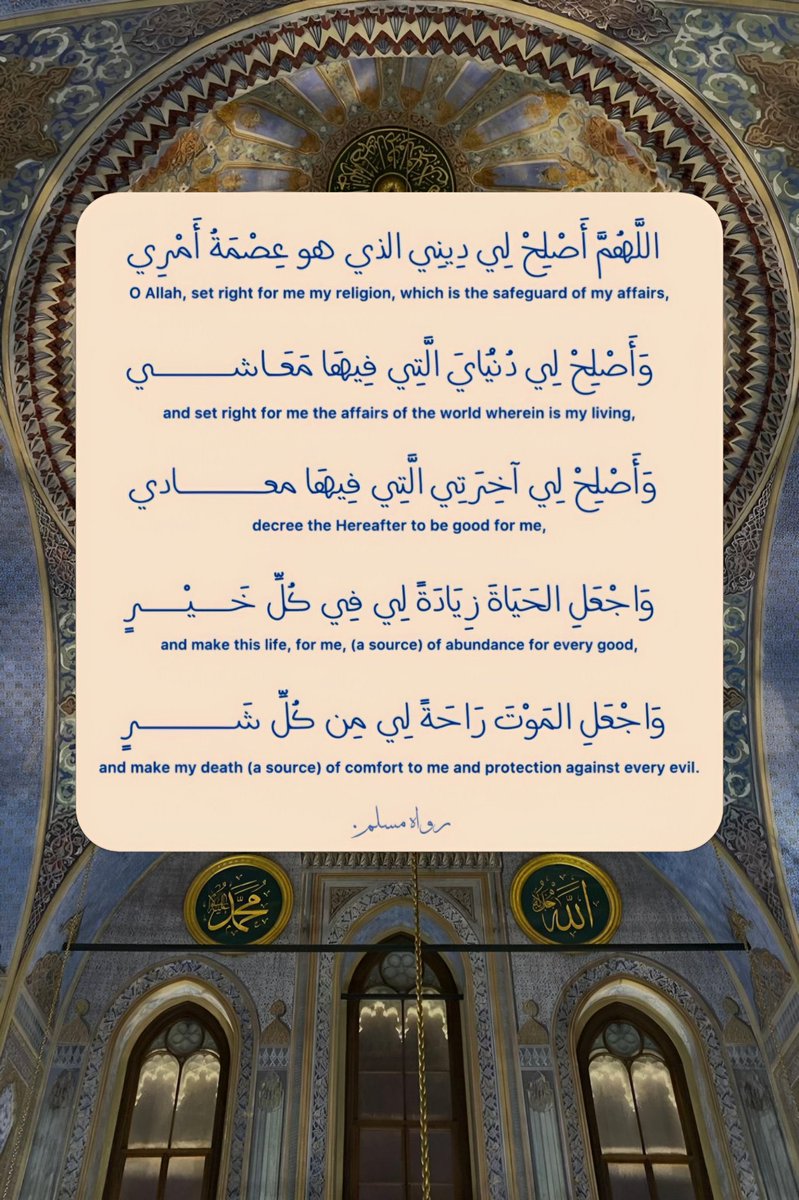 اللَّهُمَّ أَصْلِحْ لِي دِينِي الذي هو عِصْمَةُ أَمْرِي
O Allah, set right for me my religion, which is the safeguard of my affairs,
وَأَصْلِحْ لِي دُنْيَايَ الَّتِي فِيهَا مَعَاشـــــــي
and set right for me the affairs of the world wherein is my living,
وَأَصْلِحْ لِي آخِرَتِي الَّتِي فِيهَا معـــــــادي
decree the Hereafter to be good for me,
وَاجْعَلِ الحَيَاةَ زِيَادَةً لِي فِي كُلِّ خَـــيْـــرٍ
and make this life, for me, (a source) of abundance for every good,
وَاجْعَلِ المَوْتَ رَاحَةً لِي مِن كُلِّ شَـــــــرٍ
and make my death (a source) of comfort to me and protection against every evil.
رواه مسلم.
الله
محمد